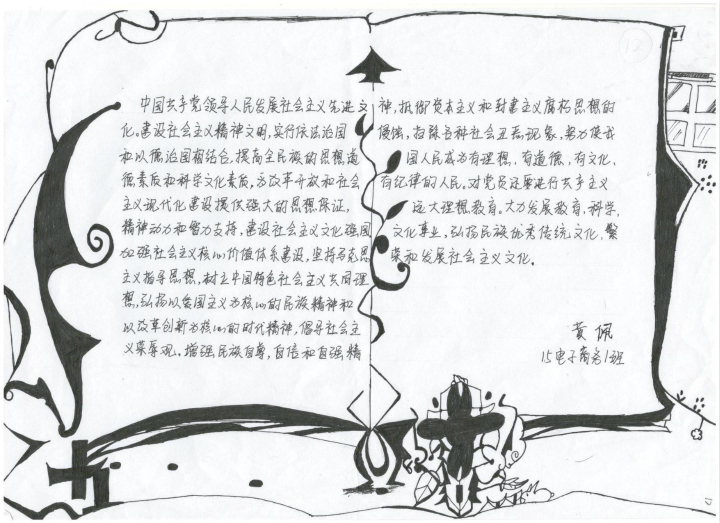 中国共产党领导人民发展社会主义先进文
化。建设社会主义精神文明,实行依法治国
和以德治国相结合,提高全民族的思想道
德素质和科学文化素质,为改革开放和社会
主义现代化建设提供强大的思想保证,
精神动力和智力支持,建设社会主义文化强国
加强社会主义核心价值体系建设,坚持马克思
主义指导思想,树立中国特色社会主义共同理
想,弘扬以爱国主义为核心的民族精神和
以改革创新为核心的时代精神,倡导社会主
义荣辱观。增强民族自尊,自信和自强精
神,抵御资本主义和封建主义腐朽思想的
侵蚀,扫除各种社会丑恶现象,努力使我
国人民成为有理想,有道德,有文化,
有纪律的人民。对党员还要进行共产主义
远大理想教育。大力发展教育,科学,
文化事业,弘扬民族优秀传统文化,繁
荣和发展社会主义文化。
黄佩
15电子商务1班
12